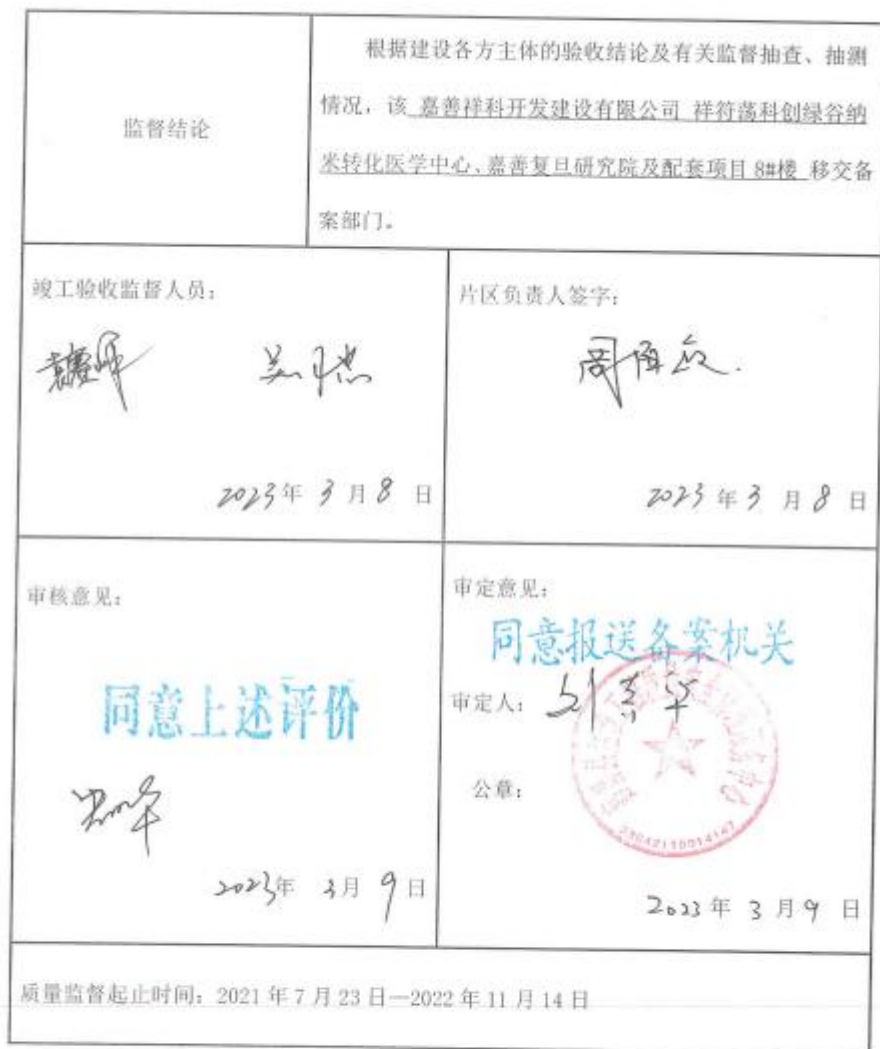 监督结论
根据建设各方主体的验收结论及有关监督抽查、抽测
情况，该 嘉善祥科开发建设有限公司 祥符荡科创绿谷纳
米转化医学中心、嘉善复旦研究院及配套项目 8#楼 移交备
案部门。
竣工验收监督人员：
2023年 3 月 8 日
片区负责人签字：
2023 年 3 月 8 日
审核意见：
同意上述评价
2023年 3月 9日
审定意见：
同意报送备案机关
审定人：
公章：
2023 年 3 月 9 日
质量监督起止时间：2021 年 7 月 23 日—2022 年 11 月 14 日